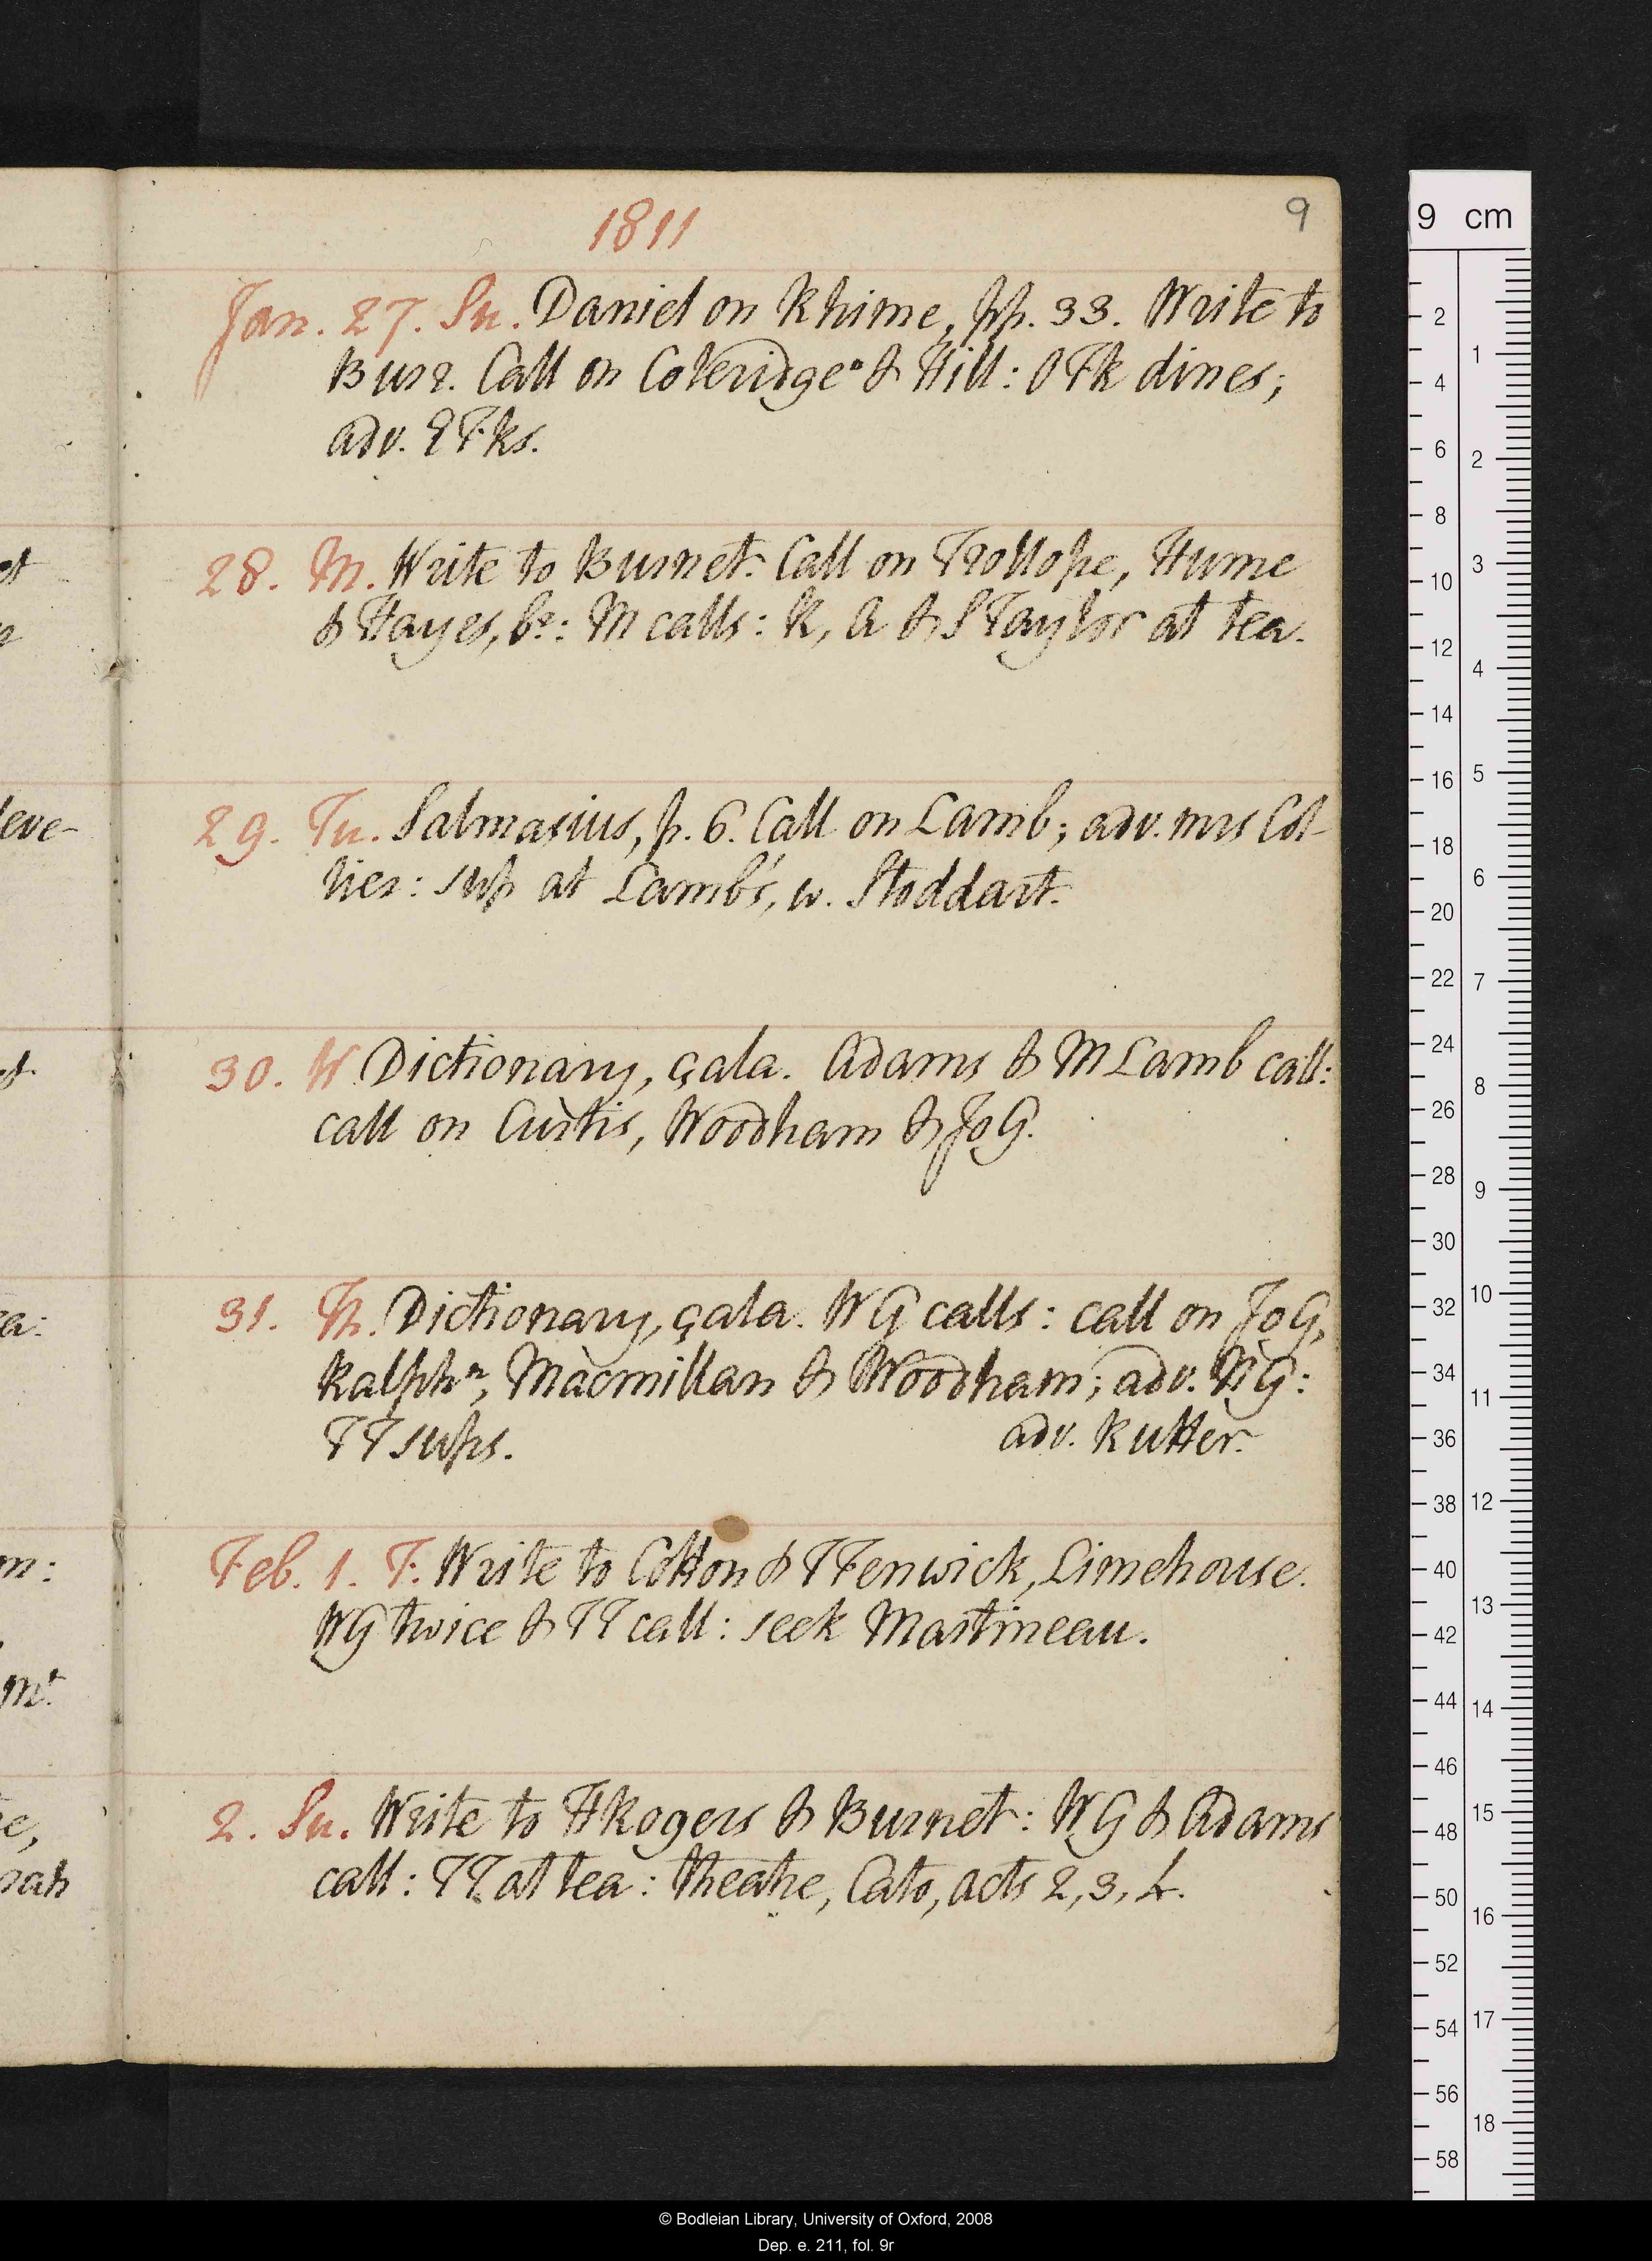 1811
9
Jan. 27. Su. Daniel on Rhime, pp. 33. Write to
Burr. Call on Coleridge° & Hill: OTR dines;
adv. ETRs.
28. M. Write to Burnet. Call on Trollope, Hume
& Hayes, br: M calls: R, A & S Taylor at tea.
29. Tu. Salmasius, p. 6. Call on Lamb; adv. mrs Col-
lier: sup at Lamb's, w. Stoddart.
30. W. Dictionary, çala. Adams & M Lamb call:
call on Curtis, Woodham & Jo G.
31. Th. Dictionary, çala. W G calls: call on Jo G,
Ralphⁿ, Macmillan & Woodham; adv. N G:
TT sups. adv. Rutter.
Feb. 1. F. Write to Cotton & T Fenwick, Limehouse.
WG twice & TT call: seek Martineau.
2. Sa. Write to H Rogers & Burnet: W G & Adams
call: TT at tea: theatre, Cato, acts 2, 3, 4.
leve-
9 cm
2
4
6
8
10
12
14
16
18
20
22
24
26
28
30
32
34
36
38
40
42
44
46
48
50
52
54
56
58
1
2
3
4
5
6
7
8
9
10
11
12
13
14
15
16
17
18
© Bodleian Library, University of Oxford, 2008
Dep. e. 211, fol. 9r